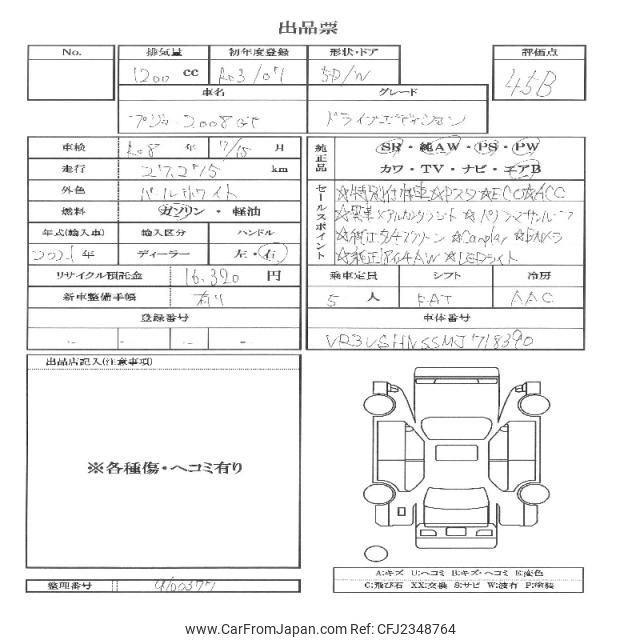 出品票
No. 排気量 初年度登録 形状・ドア 評価点
1200 cc R03/07 5D/W 4.5B
車名 グレード
プジョー2008GT ドライブエディション
車検 R08 年 7/15 月
走行 27,275 km
外色 パールホワイト
燃料 ガソリン・軽油
年式(輸入車) 輸入区分 ハンドル
2021年 ディーラー 左・右
リサイクル預託金 16,390 円
新車整備手帳 有り
登録番号
純正品 SR・純AW・PS・PW
カワ・TV・ナビ・エアB
セールスポイント
☆特別仕様車 ☆ACC
☆パノラマサンルーフ
☆Carplay ☆Bカメラ
☆LEDライト
乗車定員 シフト 冷房
5 人 FAT AAC
車体番号
VR3USHNSSMJ718390
出品店記入(注意事項)
※各種傷・ヘコミ有り
整理番号
A:キズ U:ヘコミ B:キズ・ヘコミ E:変色
C:飛び石 XX:交換 S:サビ W:波有 P:塗装
www.CarFromJapan.com - CFJ2348764